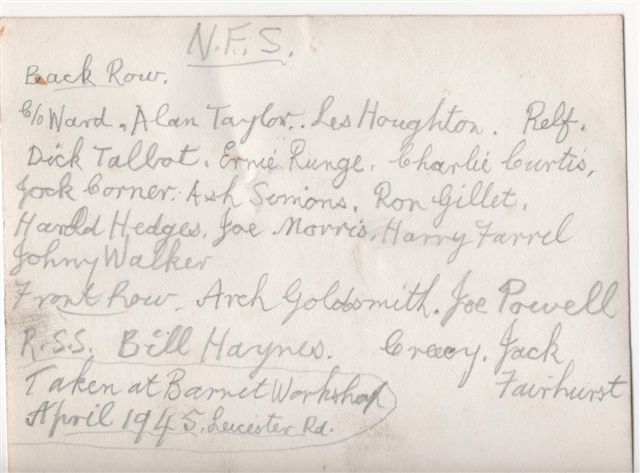 N.F.S.
Back Row.
C/O Ward. Alan Taylor. Les Houghton. Relf.
Dick Talbot. Ernie Runge. Charlie Curtis.
Jock Corner. Ash Simons. Ron Gillet.
Harold Hedges. Joe Morris. Harry Farrel
Johny Walker
Front Row. Arch Goldsmith. Joe Powell
R.S.S. Bill Haynes. Creecy. Jack
Fairhurst
Taken at Barnet Workshop
April 1945. Leicester Rd.